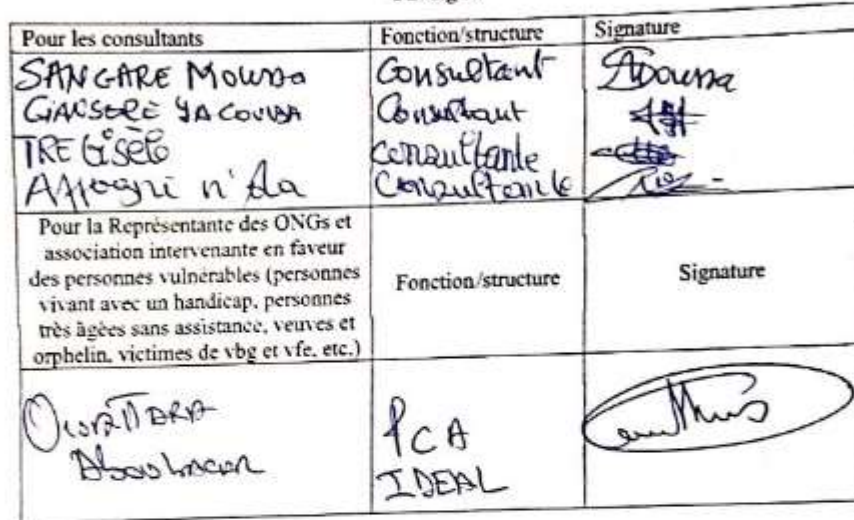 Pour les consultants Fonction/structure Signature
SANGARE Moussa Consultant Moussa
YACOUBA Consultant
TRE Gisèle consultante
Affogni n'da Consultante
Pour la Représentante des ONGs et
association intervenante en faveur
des personnes vulnérables (personnes
vivant avec un handicap, personnes
très âgées sans assistance, veuves et
orphelin, victimes de vbg et vfe, etc.)
Fonction/structure
Signature
OUATTARA PCA
IDEAL